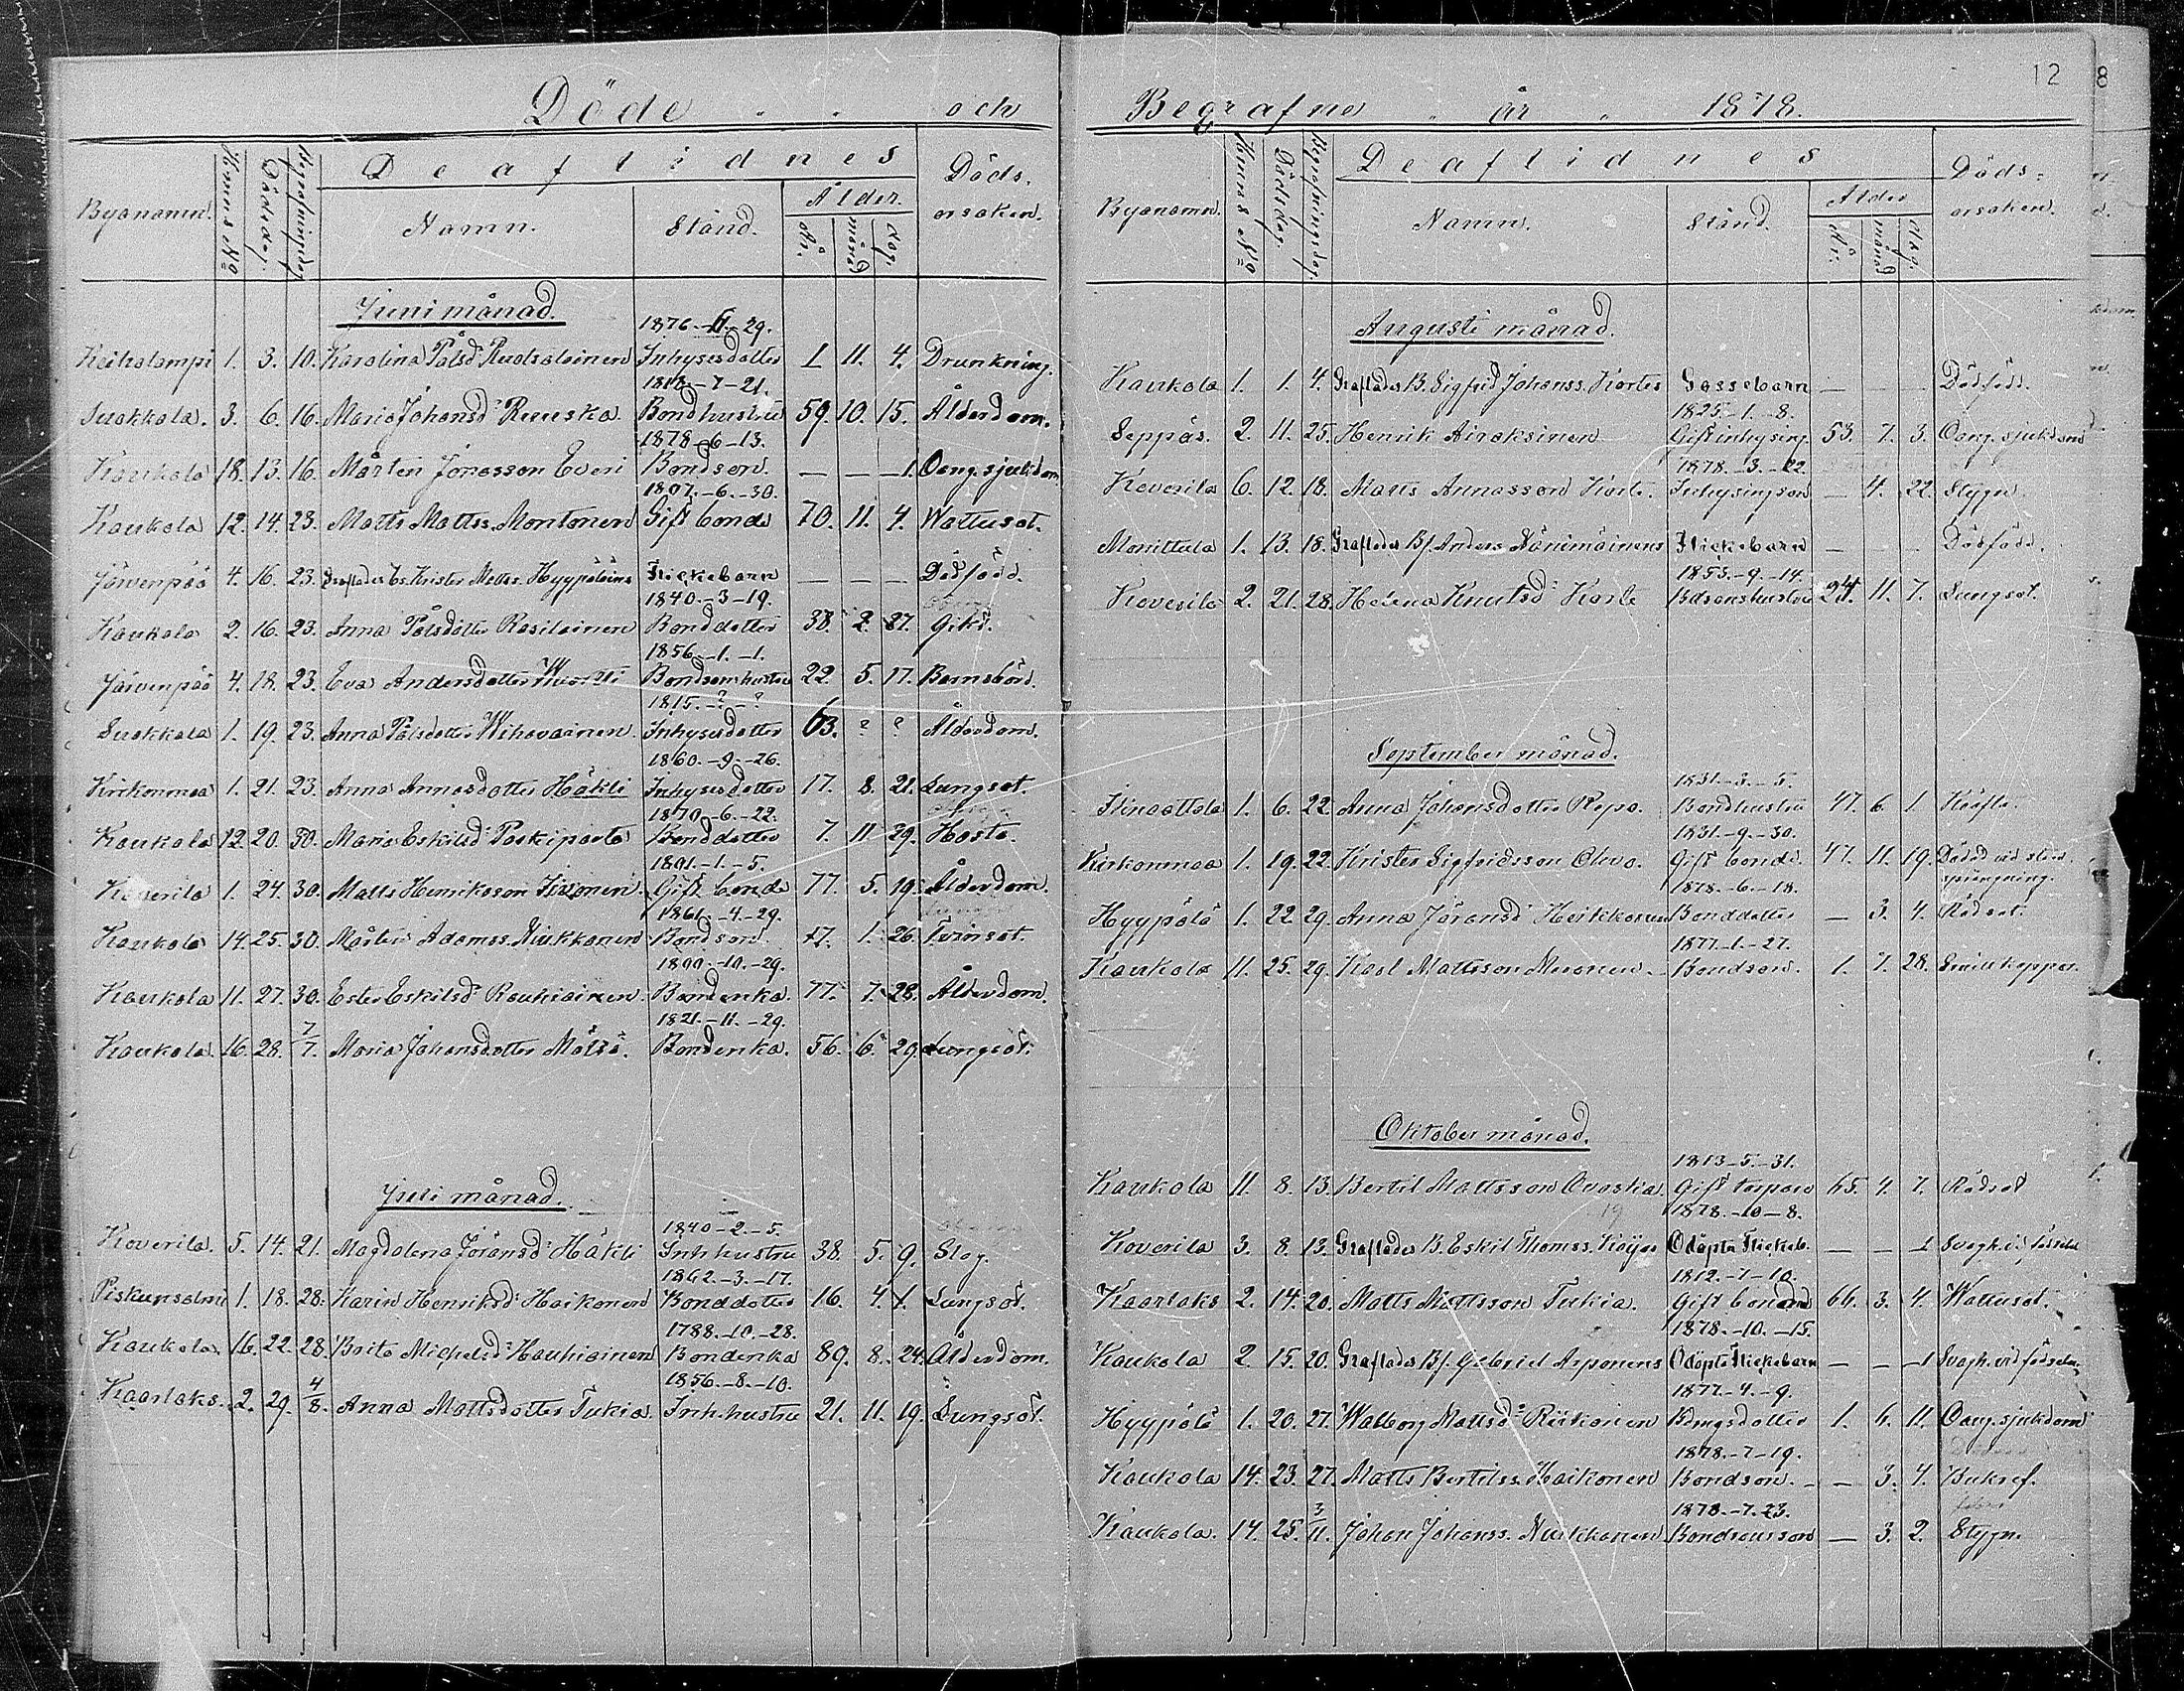 Döde och
Byanamn. Hemms No Dödsdag. Begrafningsdag. Deaflidnes Döds-
Namn. Stånd. Ålder. orsaken.
år. månad dag.
Juni månad.
1876.-6.-29.
Keikolampi 1. 3. 10. Karolina Pålsd: Ruotsalainen Inhysesdotter 1 11. 4. Drunkning.
1818.-7-21.
Suokkala. 3. 6. 16. Maria Johansd: Ruuska. Bondhustru 59. 10. 15. Ålderdom.
1878-6-13.
Kaukola 18. 13. 16. Mårten Jonasson Everi Bondson. — — 1. Oang. sjukdom
1807.-6.-30.
Kaukola 12. 14. 23. Matts Mattss. Montonen Gift bonde 70. 11. 4. Wattusot.
Järvenpää 4. 16. 23. Graflades Bs. Krister Mattss. Hyypöläins Flickebarn — — — Dödfödd.
1840.-3-19.
Kaukola 2. 16. 23. Anna Pålsdotter Rasilainen Bonddotter 38. 2. 27. Gikt.
1856.-1.-1.
Järvenpää 4. 18. 23. Eva Andersdotter Bondsonshustru 22. 5. 17. Barnsbörd.
1815.-?-?
Suokkala 1. 19. 23. Anna Pålsdotter Wihavainen. Inhysesdotter 63. ? ? Ålderdom.
1860.-9.-26.
Kirkonmaa 1. 21. 23. Anna Annasdotter Häkli Inhysesdotter 17. 8. 21. Lungsot.
1870.-6.-22.
Kaukola 12. 20. 30. Maria Eskilsd: Paskiparta Bonddotter 7. 11 29. Hosta.
1801.-1.-5.
Koverila 1. 24. 30. Matts Henriksson Gift bonde 77. 5. 19. Ålderdom.
1861.-4.-29.
Kaukola 14. 25. 30. Mårten Adamss. Nuikkanen Bondson. 17. 1. 26. Tvinsot.
1800.-10.-29.
Kaukola 11. 27. 30. Ester Eskilsd: Rauhiainen. Bondenka. 77. 7. 28. Ålderdom.
1821.-11.-29.
Kaukola. 16. 28. 7/7. Maria Johansdotter Mölsä. Bondenka. 56. 6. 29. Lungsot.
Juli månad.
1840-2-5.
Koverila. 5. 14. 21. Magdalena Jöransd: Häkli Inh.hustru 38. 5. 9. Slag.
1862.-3.-17.
Piskunsalmi 1. 18. 28. Karin Henriksd: Haikonen Bonddotter 16. 4. 1. Lungsot.
1788.-10.-28.
Kaukola. 16. 22. 28. Brita Michelsd: Kauhiainen Bondenka 89. 8. 24. Ålderdom.
1856.-8.-10.
Kaarlaks. 2. 29. 4/8. Anna Mattsdotter Tukia. Inh.hustru 21. 11. 19. Lungsot.
12
Begrafne år 1878.
Byanamn. Hemms No Dödsdag. Begrafningsdag. Deaflidnes Döds-
Namn. Stånd. Ålder orsaken.
år. månad dag.
Augusti månad.
Kaukola 1. 1. 4. Graflades B. Sigfrid Johanss. Kortes Gossebarn — — — Dödfödd.
1825.-1.-8.
Seppäs. 2. 11. 25. Henrik Airaksinen Gift inhysing. 53. 7. 3. Oang. sjukdom
1878.-3.-22.
Koverila 6. 12. 18. Matts Annasson Inhysingson — 4. 22. Stygn.
Monittula 1. 13. 18. Graflades Bf. Anders Flickebarn — — — Dödfödd.
1853.-9.-14.
Koverila 2. 21. 28. Helena Knutsd: Korte Bdsonshustru 24. 11. 7. Lungsot.
September månad.
1831.-3.-5.
1. 6. 22. Anna Johansdotter Repo. Bondhustru 47. 6. 1. Kräfta.
1831.-9.-30.
Kirkonmaa 1. 19. 22. Krister Sigfridsson Olvo. Gift bonde. 47. 11. 19. Dödad vid sten
sprängning.
1878.-6.-18.
Hyypölä 1. 22. 29. Anna Jöransd: Heikkonen Bonddotter — 3. 4. Rödsot.
1877.-1.-27.
Kaukola 11. 25. 29. Karl Mattsson Muonen. Bondson. 1. 7. 28. Småkoppor.
Oktober månad.
1813-5.-31.
Kaukola 11. 8. 13. Bertil Mattsson Ovaska. Gift torpare 65. 4. 7. Rödsot
1878.-10-8.
Koverila 3. 8. 13. Graflades B. Eskil Thomss. Odöpta Flickeb. — — 1 Svagh. vid födseln
1812.-7-10.
Kaarlaks 2. 14. 20. Matts Mattsson Tukia. Gift bonde 66. 3. 4. Wattusot.
1878.-10.-15.
Kaukola 2. 15. 20. Graflades Bf. Gabriel Arponens Odöpta Flickebarn — — 1 Svagh. vid födseln.
1877.-4.-9.
Hyypölä 1. 20. 27. Walborg Mattsd: Riikonen 1. 6. 11. Oang. sjukdom
1878.-7-19.
Kaukola 14. 23. 27. Matts Bertilss. Haikonen Bondson. — 3. 4. Bukref.
1878.-7.23.
Kaukola. 14. 25. 3/11. Johan Johanss. Nuikkanen Bondsonsson — 3. 2. Stygn.